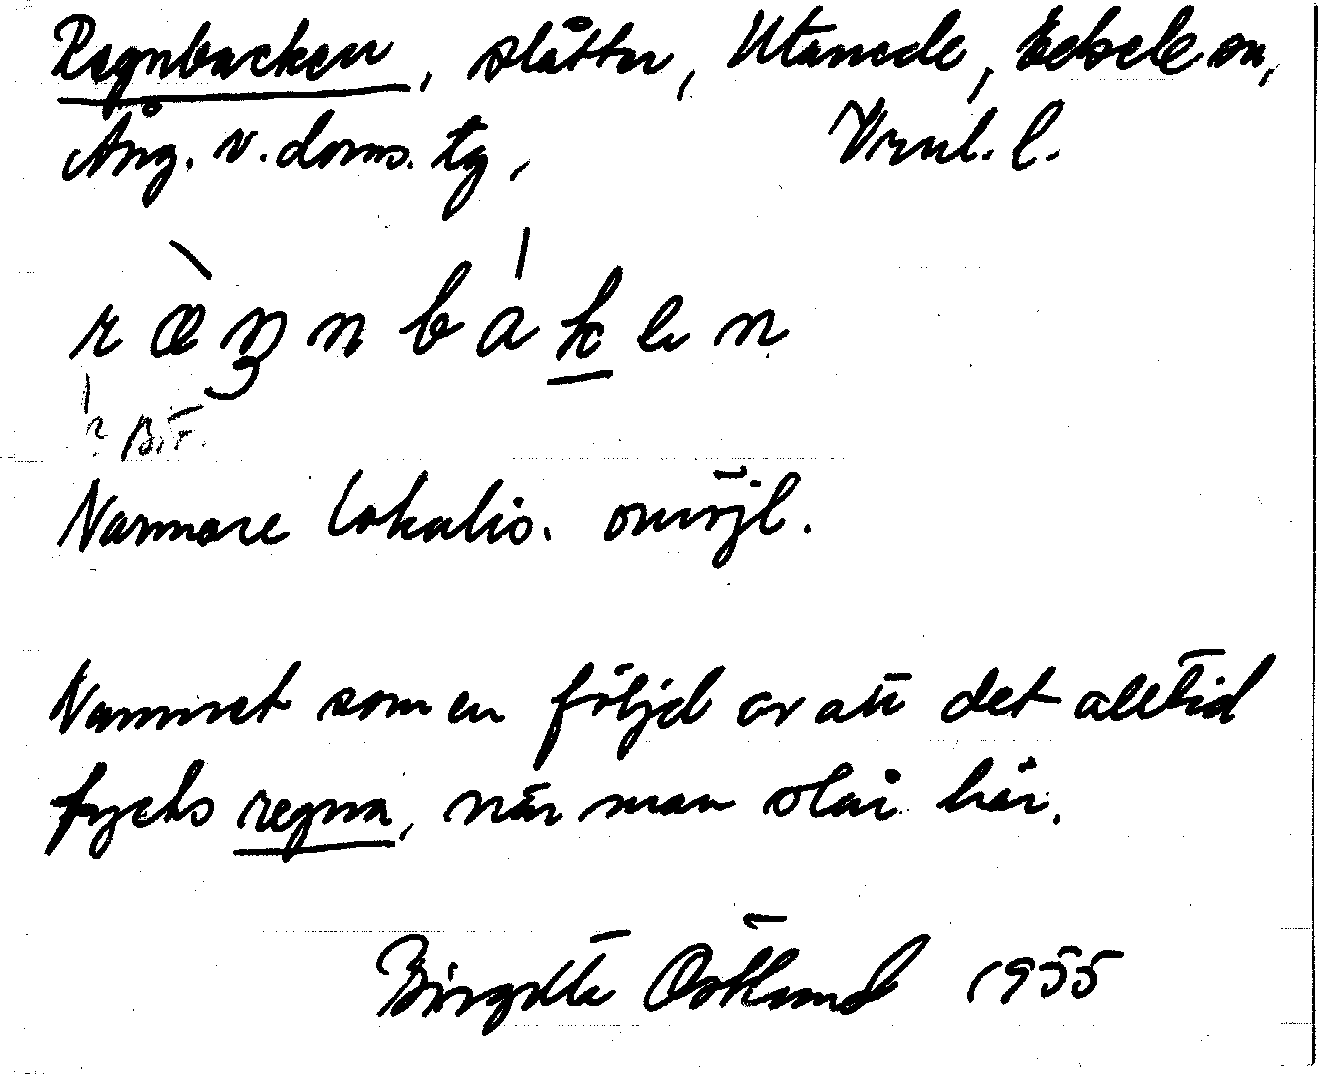 Regnbacken, slåtter, Utanede, Edsele sn,
Ång. v. doms. tg, Vrnl. l.
ræŋnbaken
? B.F.
Närmare lokalis. omöjl.
Namnet som en följd av att det alltid
tycks regna, när man slår här.
Birgitta Östlund 1955